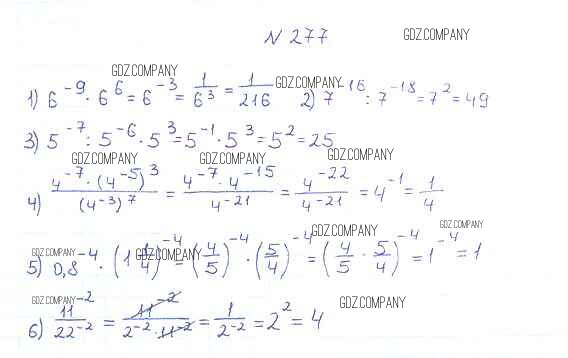 N 277 GDZ.COMPANY
GDZ.COMPANY GDZ.COMPANY
1) 6⁻⁹ · 6⁶ = 6⁻³ = 1/6³ = 1/216 2) 7⁻¹⁶ : 7⁻¹⁸ = 7² = 49
3) 5⁻⁷ : 5⁻⁶ · 5³ = 5⁻¹ · 5³ = 5² = 25
GDZ.COMPANY GDZ.COMPANY GDZ.COMPANY
4) 4⁻⁷ · (4⁻⁵)³ / (4⁻³)⁷ = 4⁻⁷ · 4⁻¹⁵ / 4⁻²¹ = 4⁻²² / 4⁻²¹ = 4⁻¹ = 1/4
GDZ.COMPANY GDZ.COMPANY GDZ.COMPANY GDZ.COMPANY
5) 0,8⁻⁴ · (1 1/4)⁻⁴ = (4/5)⁻⁴ · (5/4)⁻⁴ = (4/5 · 5/4)⁻⁴ = 1⁻⁴ = 1
GDZ.COMPANY GDZ.COMPANY
6) 11⁻² / 22⁻² = 11⁻² / 2⁻² · 11⁻² = 1 / 2⁻² = 2² = 4